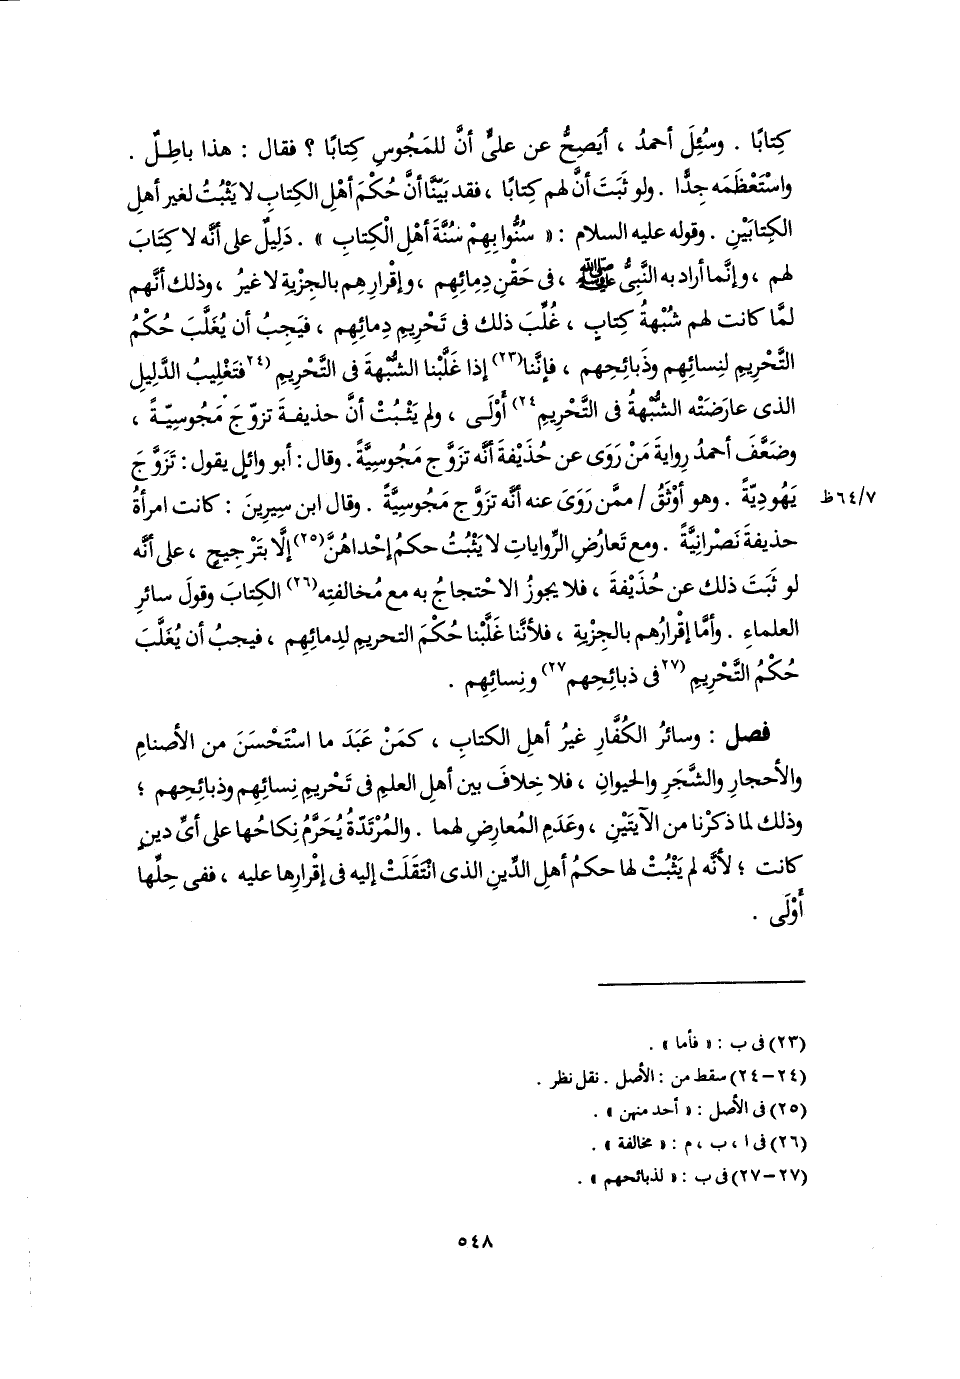 كِتابًا . وسُئِلَ أحمدُ ، أيَصِحُّ عن علىٍّ أنَّ للمَجُوسِ كِتابًا ؟ فقال : هذا باطِلٌ .
واسْتَعْظَمَه جِدًّا . ولو ثَبَتَ أنَّ لهم كِتابًا ، فقد بَيّنَّا أنَّ حُكْمَ أهْلِ الكتابِ لا يَثْبُتُ لغيرِ أهلِ
الكِتابَيْنِ . وقوله عليه السلام : « سُنُّوا بِهِمْ سُنَّةَ أهْلِ الْكِتابِ » . دَلِيلٌ على أنَّه لا كِتابَ
لهم ، وإنَّما أراد به النَّبِىُّ ﷺ ، فى حَقْنِ دِمائِهم ، وإقْرارِهم بالجِزْيةِ لا غيرُ ، وذلك أنَّهم
لمَّا كانت لهم شُبْهةُ كِتابٍ ، غُلِّبَ ذلك فى تَحْرِيمِ دِمائِهم ، فيَجِبُ أن يُغَلَّبَ حُكْمُ
التَّحْرِيمِ لنِسائِهم وذَبائِحِهم ، فإنَّنا(٢٣) إذا غَلَّبْنا الشُّبْهةَ فى التَّحْرِيمِ (٢٤فتَغْلِيبُ الدَّلِيلِ
الذى عارَضَتْه الشُّبْهةُ فى التَّحْرِيمِ٢٤) أَوْلَى ، ولم يَثْبُتْ أنَّ حذيفةَ تزوّجَ مَجُوسِيّةً ،
وضَعَّفَ أحمدُ رِوايةَ مَنْ رَوَى عن حُذَيْفةَ أنَّه تزوَّج مَجُوسِيَّةً . وقال : أبو وائلٍ يقول : تَزَوَّجَ
يَهُودِيّةً . وهو أوْثَقُ / ممَّن رَوَى عنه أنَّه تزوَّج مَجُوسِيَّةً . وقال ابن سِيرِينَ : كانت امرأةُ ٦٤/٧ظ
حذيفةَ نَصْرانِيَّةً . ومع تَعارُضِ الرِّواياتِ لا يَثْبُتُ حكمُ إحْداهُنَّ(٢٥) إلَّا بتَرْجِيحٍ ، على أنَّه
لو ثَبَتَ ذلك عن حُذَيْفةَ ، فلا يجوزُ الاحْتجاجُ به مع مُخالفتِه(٢٦) الكِتابَ وقولَ سائرِ
العلماءِ . وأمَّا إقْرارُهم بالجِزْيةِ ، فلأنَّنا غَلَّبْنا حُكْمَ التحريمِ لدِمائِهم ، فيجبُ أن يُغَلَّبَ
حُكْمُ التَّحْرِيمِ (٢٧فى ذبائِحهم٢٧) ونِسائِهم .
فصل : وسائرُ الكُفَّارِ غيرُ أهلِ الكتابِ ، كمَنْ عَبَدَ ما اسْتَحْسَنَ من الأصنامِ
والأحجارِ والشَّجَرِ والحيوانِ ، فلا خِلافَ بين أهلِ العلمِ فى تَحْرِيمِ نِسائِهم وذبائِحهم ؛
وذلك لما ذكرْنا من الآيتَيْنِ ، وعَدَمِ المُعارِضِ لهما . والمُرْتَدّةُ يُحَرَّمُ نِكاحُها على أىِّ دينٍ
كانت ؛ لأنَّه لم يَثْبُتْ لها حكمُ أهلِ الدِّينِ الذى انْتَقَلَتْ إليه فى إقْرارِها عليه ، ففى حِلِّها
أَوْلَى .
(٢٣) فى ب : « فأما » .
(٢٤-٢٤) سقط من : الأصل . نقل نظر .
(٢٥) فى الأصل : « أحد منهن » .
(٢٦) فى ا ، ب ، م : « مخالفة » .
(٢٧-٢٧) فى ب : « لذبائحهم » .
٥٤٨